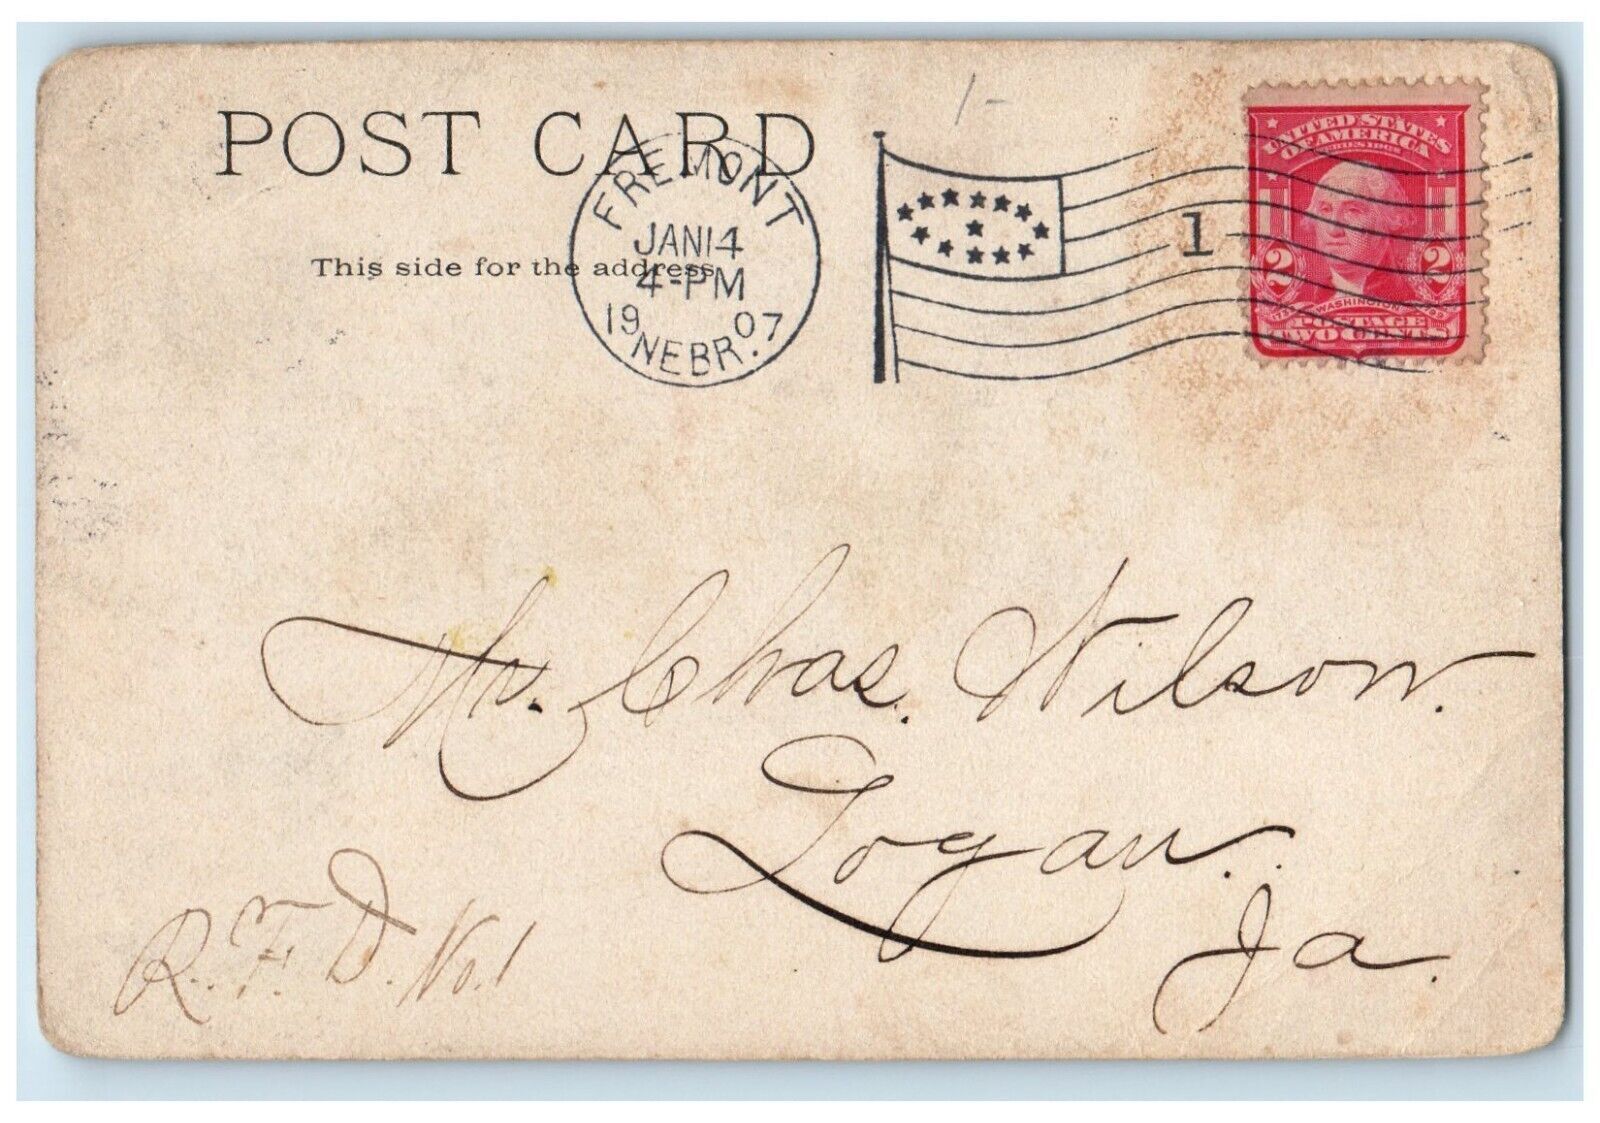 1-
POST CARD
This side for the address
FREMONT
JAN 14
4-PM
1907
NEBR.
1
UNITED STATES
OF AMERICA
SERIES 1902
2 2
1732 WASHINGTON 1799
POSTAGE
TWO CENTS
Mr. Chas. Wilson.
Logan.
Ia.
R.F.D. No.1